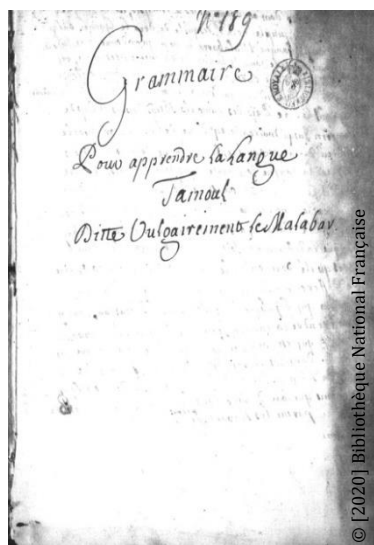 N° 189
Grammaire
Pour apprendre la Langue
Tamoul
Ditte Vulgairement le Malabar
© [2020] Bibliothèque National Française